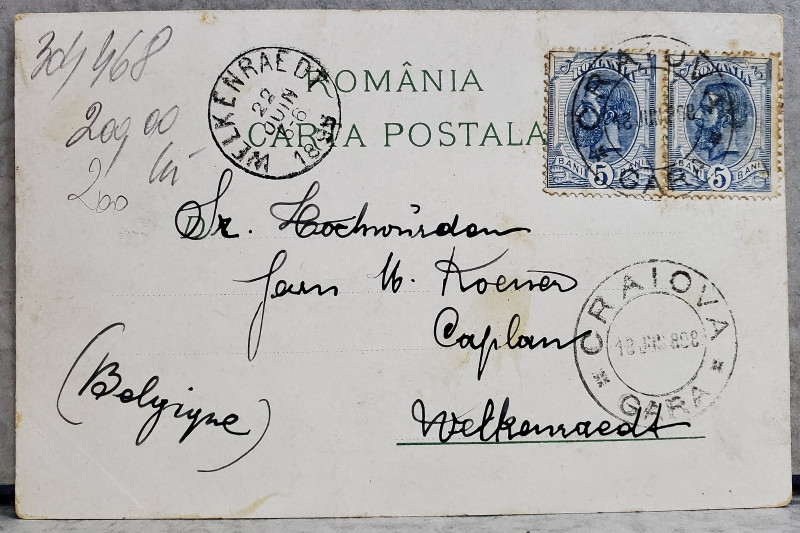 304468
200,00
200 lei
WELKENRAEDT
22
JUIN
5-6
1898
ROMÂNIA
CARTA POSTALA
ROMANIA
BANI 5 BANI
ROMANIA
BANI 5 BANI
CRAIOVA
18 JUN 898
GARA
Sr. Hochwürden
Herrn M. Koener
Caplan
Welkenraedt
(Belgique)
CRAIOVA
18 JUN 898
GARA